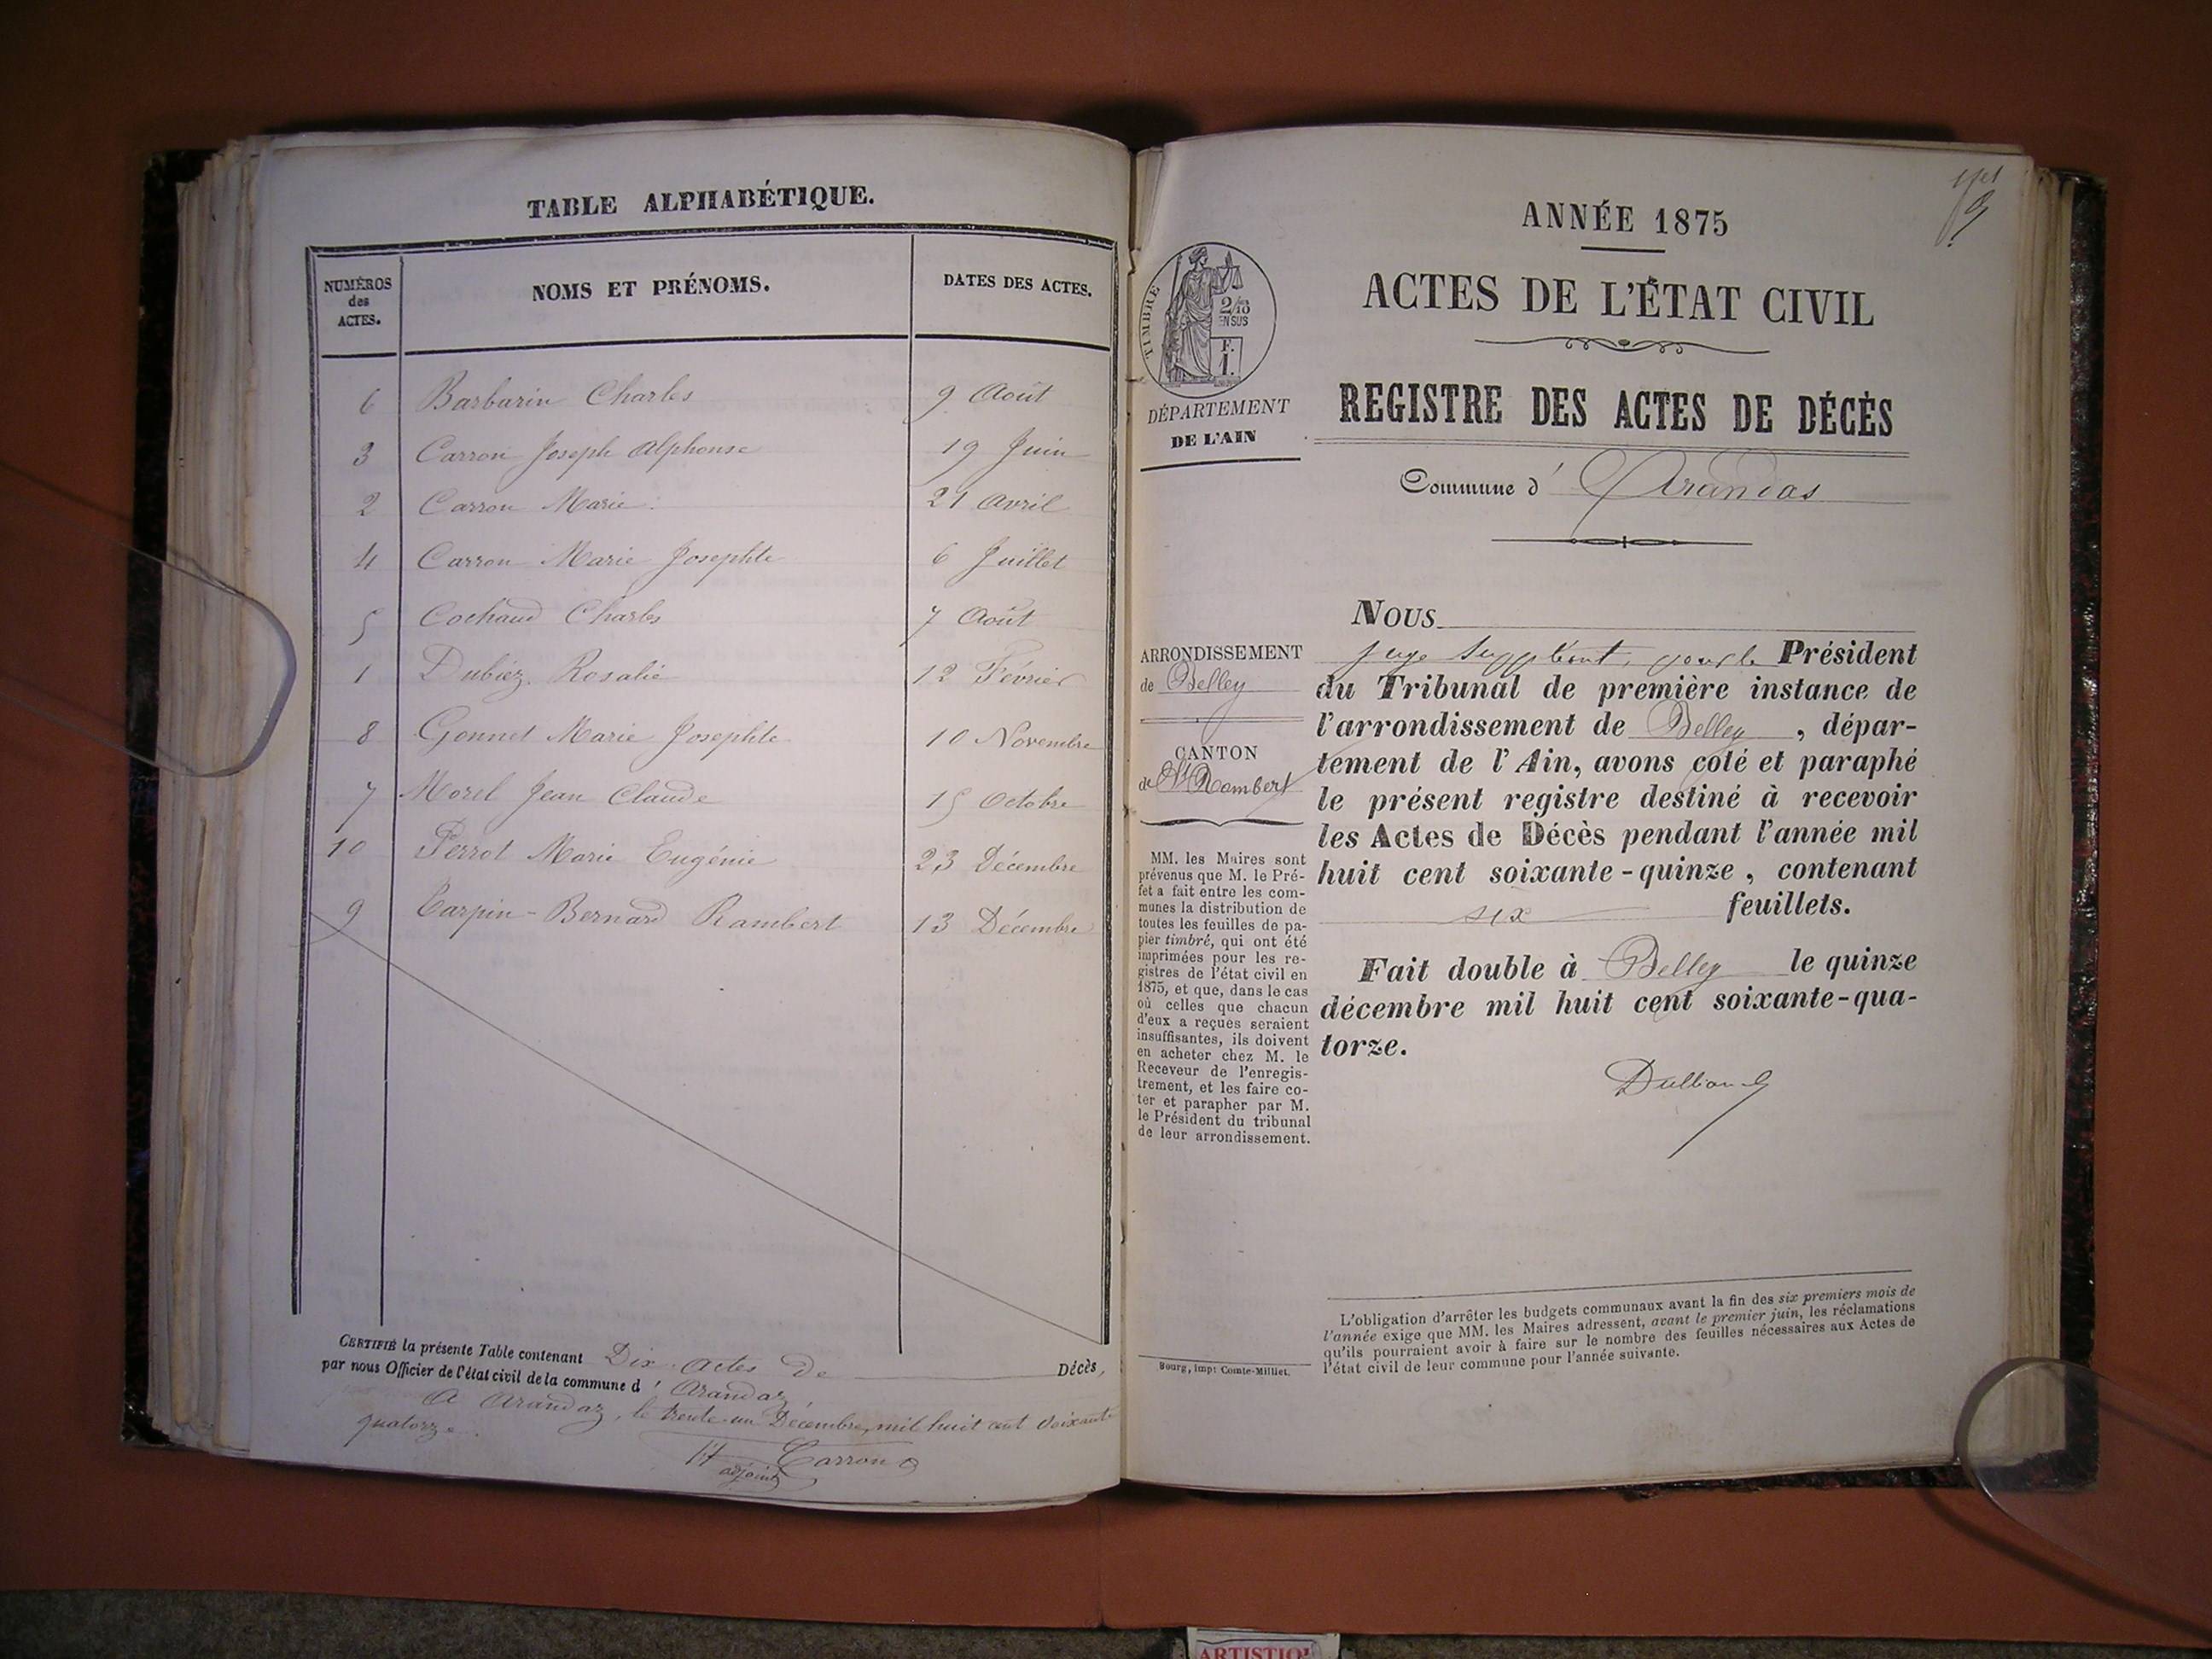 TABLE ALPHABÉTIQUE.
NUMÉROS des ACTES. NOMS ET PRÉNOMS. DATES DES ACTES.
6 Barbarin Charles 9 Août
3 Carron Joseph Alphonse 19 Juin
2 Carron Marie 21 Avril
4 Carron Marie Josephte 6 Juillet
5 Cochaud Charles 7 Août
1 Dubiez Rosalie 12 Février
8 Gonnet Marie Josephte 10 Novembre
7 Morel Jean Claude 15 Octobre
10 Perrot Marie Eugénie 23 Décembre
9 Carpin-Bernard Rambert 13 Décembre
CERTIFIÉ la présente Table contenant Dix actes de Décès,
par nous Officier de l'état civil de la commune d' Arandaz
A Arandaz, le trente un Décembre, mil huit cent soixante
quatorze.
Carron
adjoint
ANNÉE 1875
ACTES DE L'ÉTAT CIVIL
REGISTRE DES ACTES DE DÉCÈS
Commune d' Arandas
TIMBRE
2/10
EN SUS
F.
1.
DÉPARTEMENT
DE L'AIN
ARRONDISSEMENT
de Belley
CANTON
de St Rambert
MM. les Maires sont
prévenus que M. le Pré-
fet a fait entre les com-
munes la distribution de
toutes les feuilles de pa-
pier timbré, qui ont été
imprimées pour les re-
gistres de l'état civil en
1875, et que, dans le cas
où celles que chacun
d'eux a reçues seraient
insuffisantes, ils doivent
en acheter chez M. le
Receveur de l'enregis-
trement, et les faire co-
ter et parapher par M.
le Président du tribunal
de leur arrondissement.
Bourg, imp: Comte-Milliet.
NOUS
juge suppléant, pour le Président
du Tribunal de première instance de
l'arrondissement de Belley, dépar-
tement de l'Ain, avons coté et paraphé
le présent registre destiné à recevoir
les Actes de Décès pendant l'année mil
huit cent soixante-quinze, contenant
six feuillets.
Fait double à Belley le quinze
décembre mil huit cent soixante-qua-
torze.
L'obligation d'arrêter les budgets communaux avant la fin des six premiers mois de
l'année exige que MM. les Maires adressent, avant le premier juin, les réclamations
qu'ils pourraient avoir à faire sur le nombre des feuilles nécessaires aux Actes de
l'état civil de leur commune pour l'année suivante.